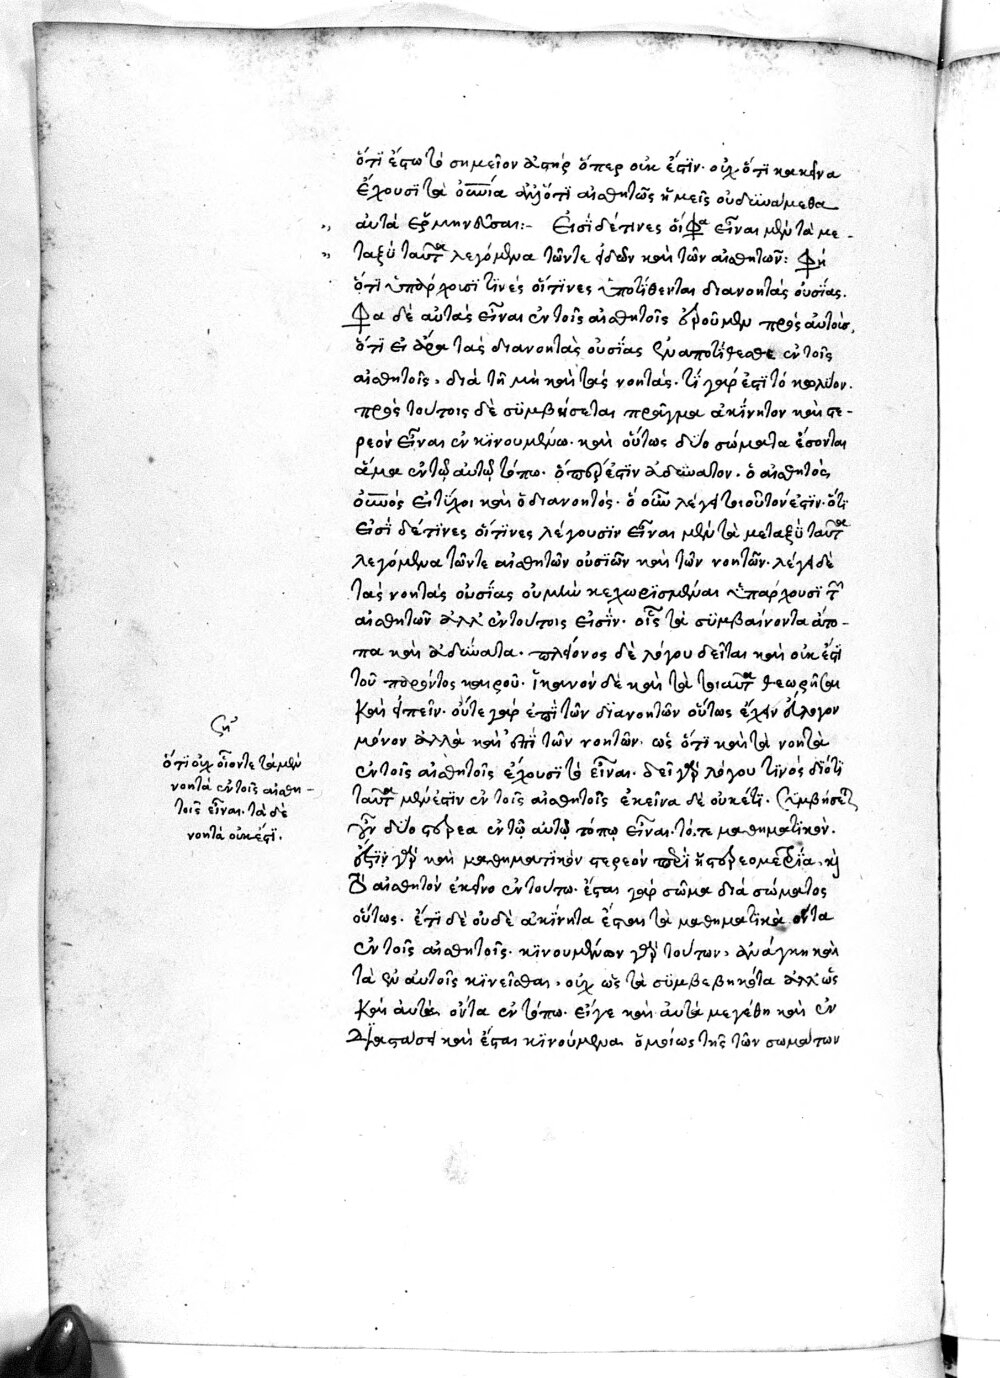 ὅτι ἔστω τὸ σημεῖον ἀστὴρ ὅπερ οὐκ ἔστιν. οὐχ ὅτι κακεῖνα
ἔχουσι τὰ ὁποῖα ἀλλ' ὅτι αἰσθητῶς ἡμεῖς οὐ δυνάμεθα
αὐτὰ ἑρμηνεῦσαι:- Εἰσὶ δέ τινες οἵ φα εἶναι μὲν τὰ με-
ταξὺ ταῦτα λεγόμενα τῶν τε εἰδῶν καὶ τῶν αἰσθητῶν: Φη
ὅτι ὑπάρχουσί τινες οἵτινες ὑποτίθενται διανοητὰς οὐσίας.
Φα δὲ αὐτὰς εἶναι ἐν τοῖς αἰσθητοῖς ἐροῦμεν πρὸς αὐτούς,
ὅτι εἰ ἄρα τὰς διανοητὰς οὐσίας ἐναποτίθεσθε ἐν τοῖς
αἰσθητοῖς, διὰ τί μὴ καὶ τὰς νοητάς. τί γάρ ἐστι τὸ κωλῦον.
πρὸς τούτοις δὲ συμβήσεται πρᾶγμα ἀκίνητον καὶ στε-
ρεὸν εἶναι ἐν κινουμένω. καὶ οὕτως δύο σώματα ἔσονται
ἅμα ἐν τῷ αὐτῷ τόπω. ὅπερ ἐστὶν ἀδύνατον. ὁ αἰσθητὸς
οὐνὸς εἰ τύχοι καὶ ὁ διανοητός. ὃ οὖν λέγει τοιοῦτόν ἐστιν. ὅτι
εἰσὶ δέ τινες οἵτινες λέγουσιν εἶναι μὲν τὰ μεταξὺ ταῦτα
λεγόμενα τῶν τε αἰσθητῶν οὐσιῶν καὶ τῶν νοητῶν. λέγει δὲ
τὰς νοητὰς οὐσίας οὐ μὴν κεχωρισμέναι ὑπάρχουσι τῶν
αἰσθητῶν ἀλλ' ἐν τούτοις εἰσίν. οἷς τὰ συμβαίνοντα ἄτο-
πα καὶ ἀδύνατα. πλείονος δὲ λόγου δεῖται καὶ οὐκ ἔστι
τοῦ παρόντος καιροῦ. ἱκανὸν δὲ καὶ τὰ τοιαῦτα θεωρῆσαι
καὶ εἰπεῖν. οὔτε γὰρ ἐπὶ τῶν διανοητῶν οὕτως ἔχειν εὔλογον
μόνον ἀλλὰ καὶ ἐπὶ τῶν νοητῶν. ὡς ὅτι καὶ τὰ νοητὰ
ἐν τοῖς αἰσθητοῖς ἔχουσι τὸ εἶναι. δεῖ γὰρ λόγου τινὸς διότι
ταῦτα μέν ἐστιν ἐν τοῖς αἰσθητοῖς ἐκεῖνα δὲ οὐκέτι. Συμβήσεται
γοῦν δύο στερεὰ ἐν τῷ αὐτῷ τόπῳ εἶναι. τό, τε μαθηματικόν.
ἔστιν γὰρ καὶ μαθηματικὸν στερεὸν περὶ ὃ ἡ στερεομετρία, καὶ
τὸ αἰσθητὸν ἐκεῖνο ἐν τούτω. ἔσται γὰρ σῶμα διὰ σώματος
οὕτως. ἔτι δὲ οὐδὲ ἀκίνητα ἔσται τὰ μαθηματικὰ ὄντα
ἐν τοῖς αἰσθητοῖς. κινουμένων γὰρ τούτων, ἀνάγκη καὶ
τὰ ἐν αὐτοῖς κινεῖσθαι, οὐχ ὡς τὰ συμβεβηκότα ἀλλ' ὡς
καὶ αὐτὰ ὄντα ἐν τόπω. εἴγε καὶ αὐτὰ μεγέθη καὶ ἐν
διαστάσει καὶ ἔσται κινούμενα ὁμοίως τῆς τῶν σωμάτων
ση
ὅτι οὐχ οἷόν τε τὰ μὲν
νοητὰ ἐν τοῖς αἰσθη-
τοῖς εἶναι. τὰ δὲ
νοητὰ οὐκ ἔστι.